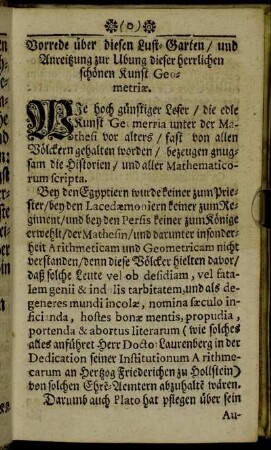 (o)
Vorrede über diesen Lust-Garten / und
Anreitzung zur Ubung dieser herrlichen
schönen Kunst Geo-
metriæ.
WJe hoch günstiger Leser / die edle
Kunst Geometria unter der Ma-
thesi vor alters / fast von allen
Völckern gehalten worden / bezeugen gnug-
sam die Historien / und aller Mathematico-
rum scripta.
Bey den Egyptiern wurde keiner zum Prie-
ster / bey den Lacedæmoniern keiner zum Re-
giment / und bey den Persis keiner zum Könige
erwehlt / der Mathesin / und darunter insonder-
heit Arithmeticam und Geometricam nicht
verstanden / denn diese Völcker hielten davor /
daß solche Leute vel ob desidiam, vel fata-
lem genii & indolis tarditatem, und als de-
generes mundi incolæ, nomina sæculo in-
ficianda, hostes bonæ mentis, propudia,
portenda & abortus literarum (wie solches
alles anführet Herr Doctor Laurenberg in der
Dedication seiner Institutionum Arithme-
carum an Hertzog Friederichen zu Hollstein)
von solchen Ehrē-Aemtern abzuhaltē wären.
Darumb auch Plato hat pflegen über sein
Au-